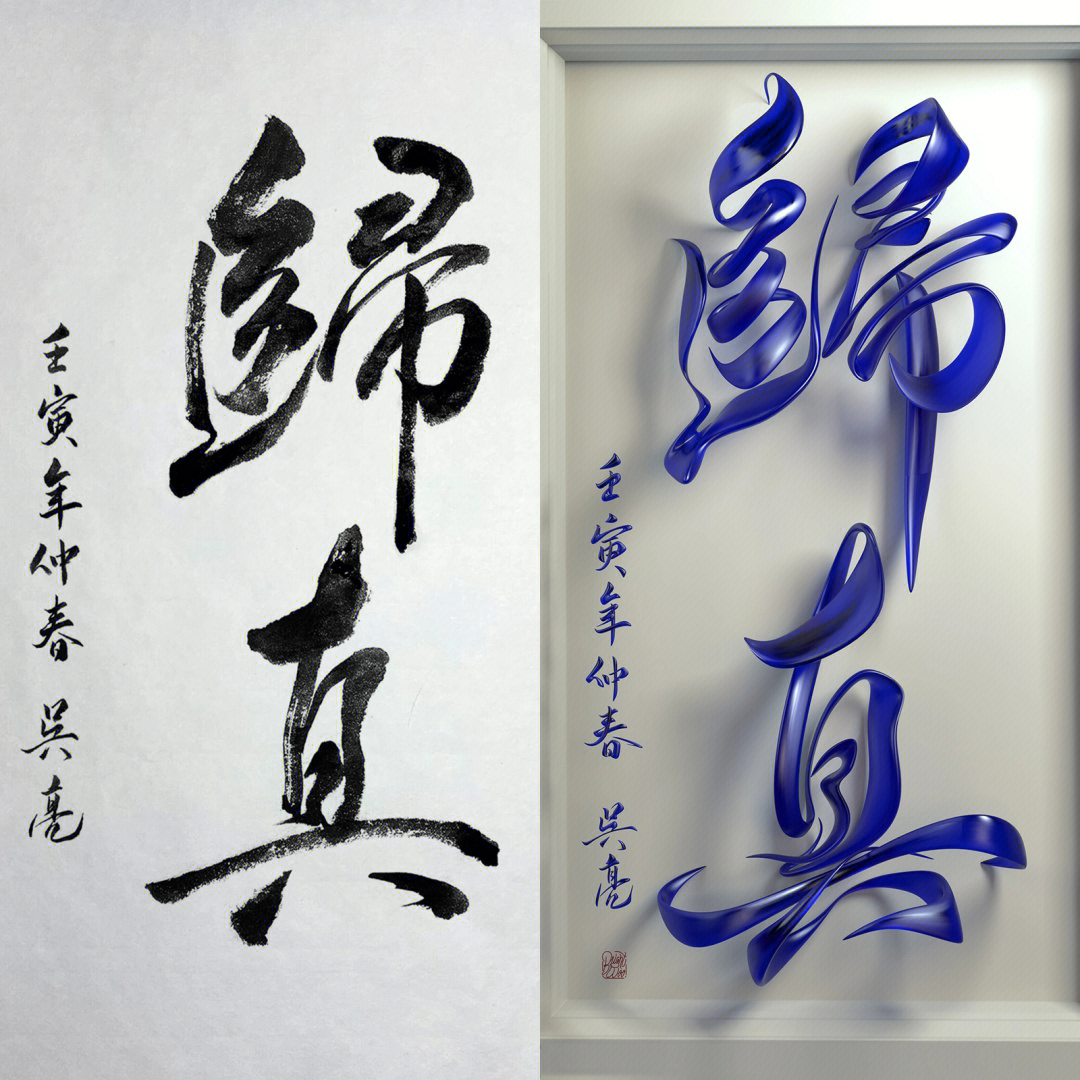 歸真
壬寅年仲春 吳亮
歸真
壬寅年仲春 吳亮